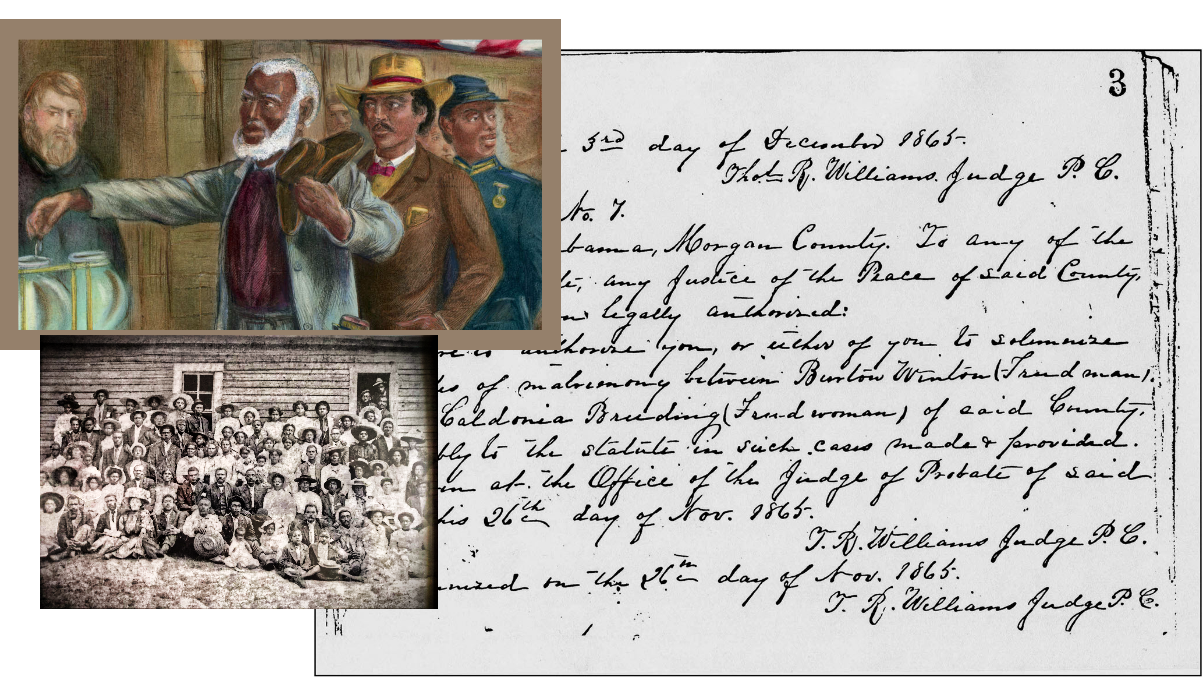 3
3rd day of December 1865.
Thos. R. Williams. Judge P. C.
No. 7.
bama, Morgan County. To any of the
te, any Justice of the Peace of said County,
legally authorized:
authorize you, or either of you to solemnize
es of matrimony between Burton Winton (Freedman),
Caldonia Breeding (Freedwoman) of said County,
bly to the statute in such cases made & provided.
en at the Office of the Judge of Probate of said
his 26th day of Nov. 1865.
T. R. Williams Judge P. C.
mnized on the 26th day of Nov. 1865.
T. R. Williams Judge P. C.